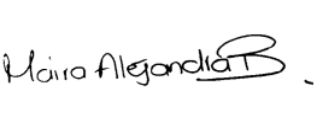 Maira Alejandra B